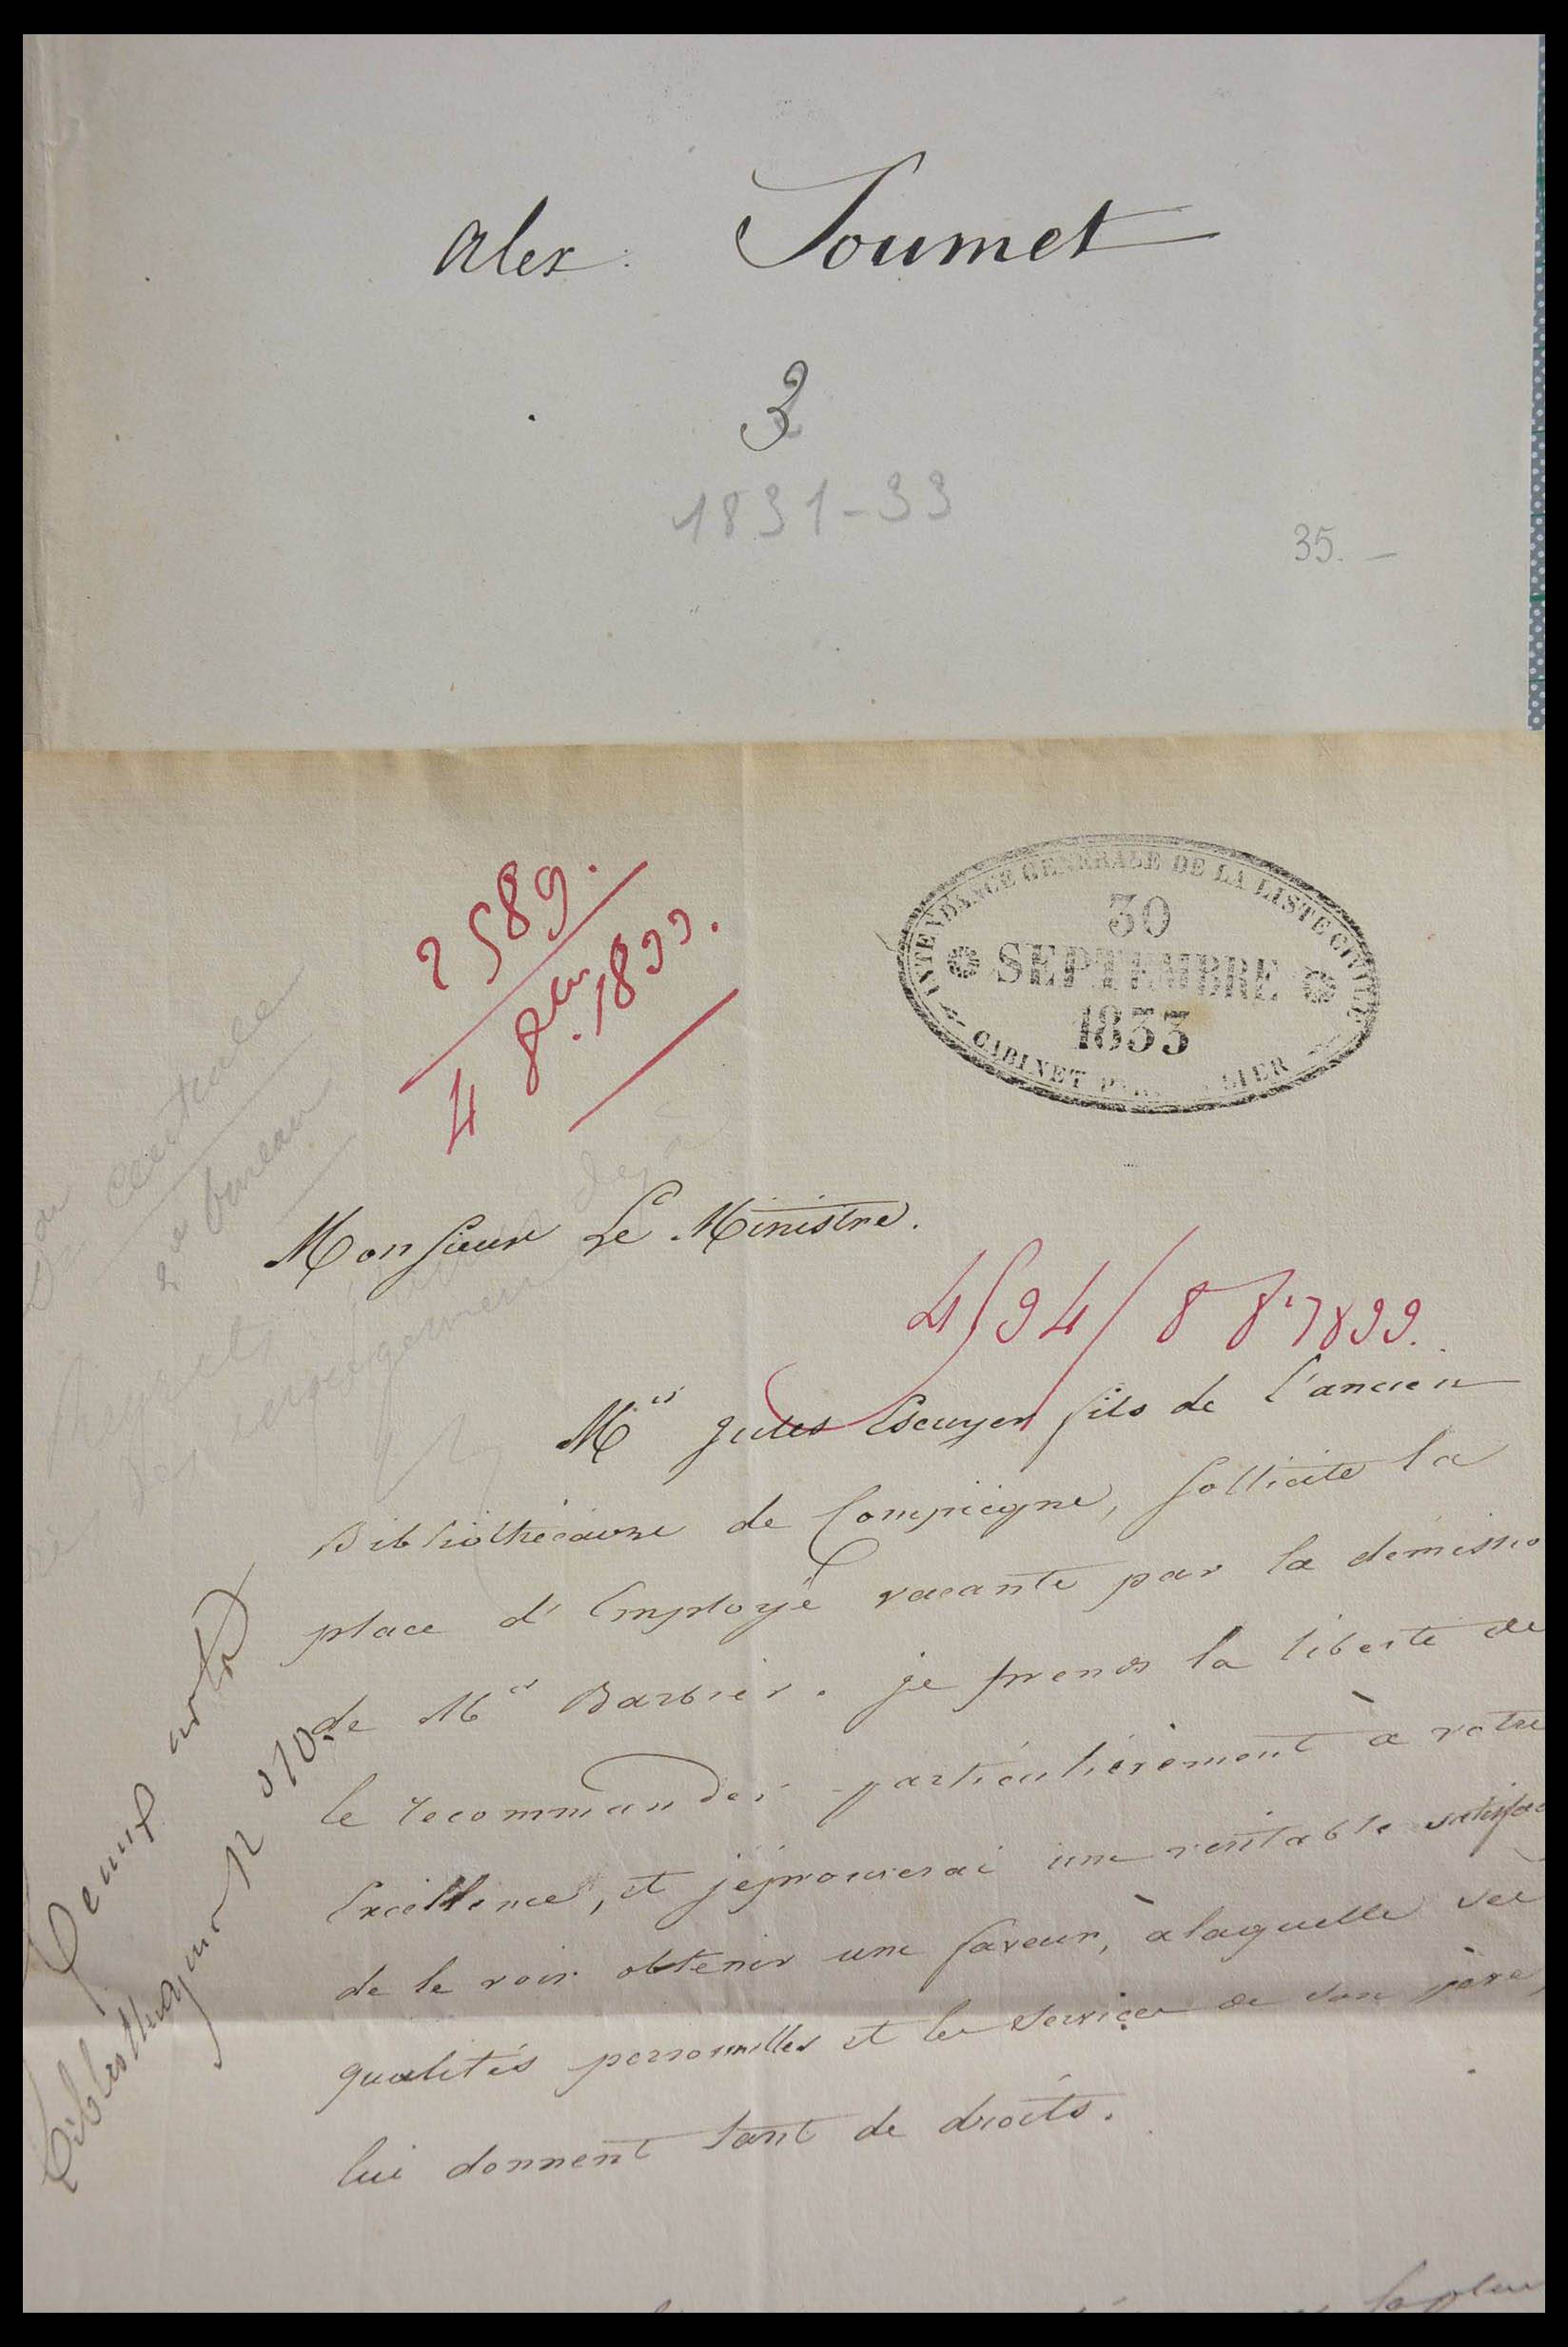 Alex. Soumet
3
1831-33
35.-
INTENDANCE GENERALE DE LA LISTE CIVILE
30
SEPTEMBRE
1833
CABINET PARTICULIER
2589.
4 8bre 1833.
centrale
2e bureau
Monsieur Le Ministre.
4594 / 8 8bre 1833.
Mr jules Escuyer fils de l'ancien
Bibliothécaire de Compiegne, sollicite la
place d'Employé vacante par la démissio
de Mr Barbier. je prends la liberté de
le recommander particulièrement à votre
Excellence, et j'éprouverai une veritable satisfac
de le voir obtenir une faveur, à laquelle ses
qualités personnelles et les services de son père,
lui donnent tant de droits.